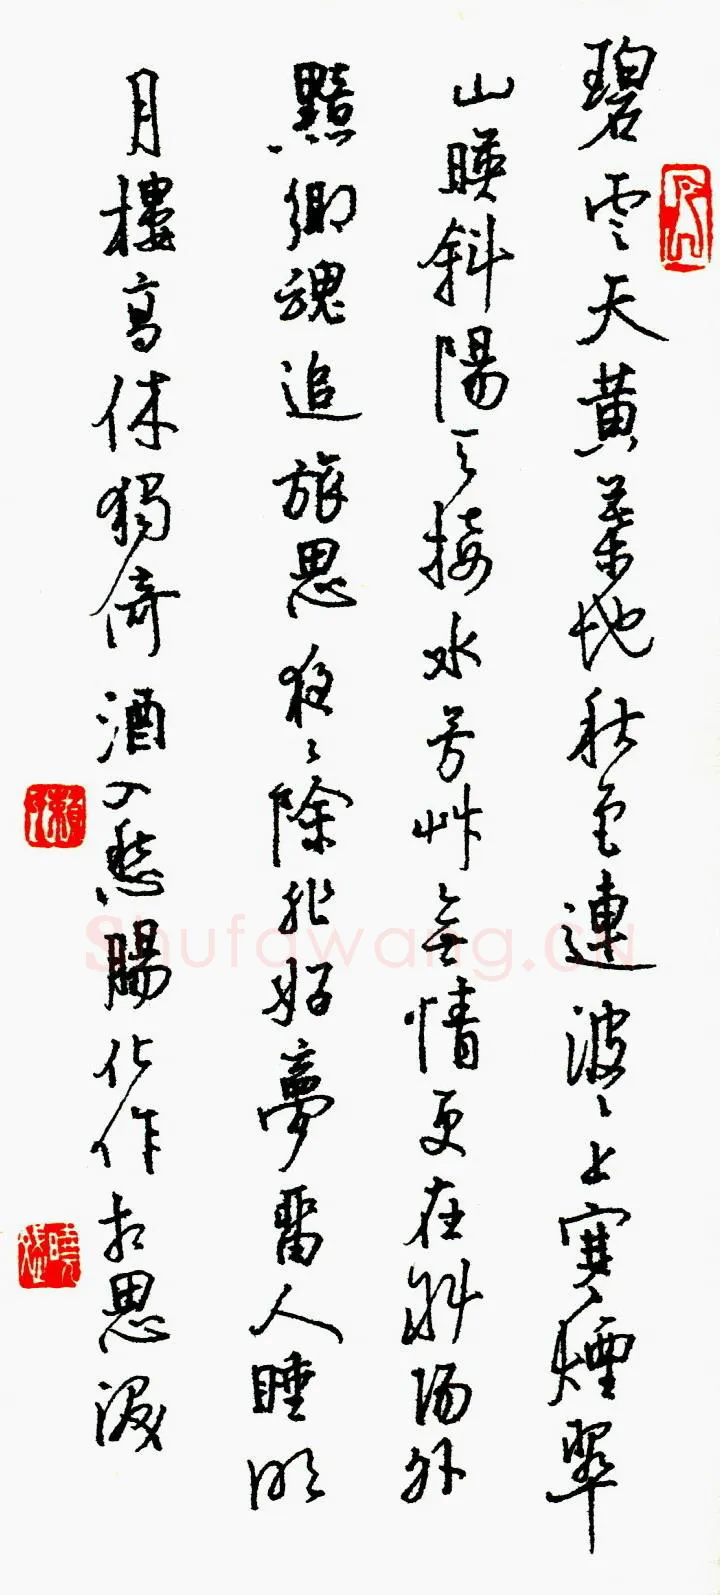 碧雲天黃葉地秋色連波〻上寒煙翠
山暎斜陽天接水芳艸無情更在斜陽外
黯鄉魂追旅思夜〻除非好夢留人睡明
月樓高休獨倚酒入愁腸化作相思淚
Shufawang.CN